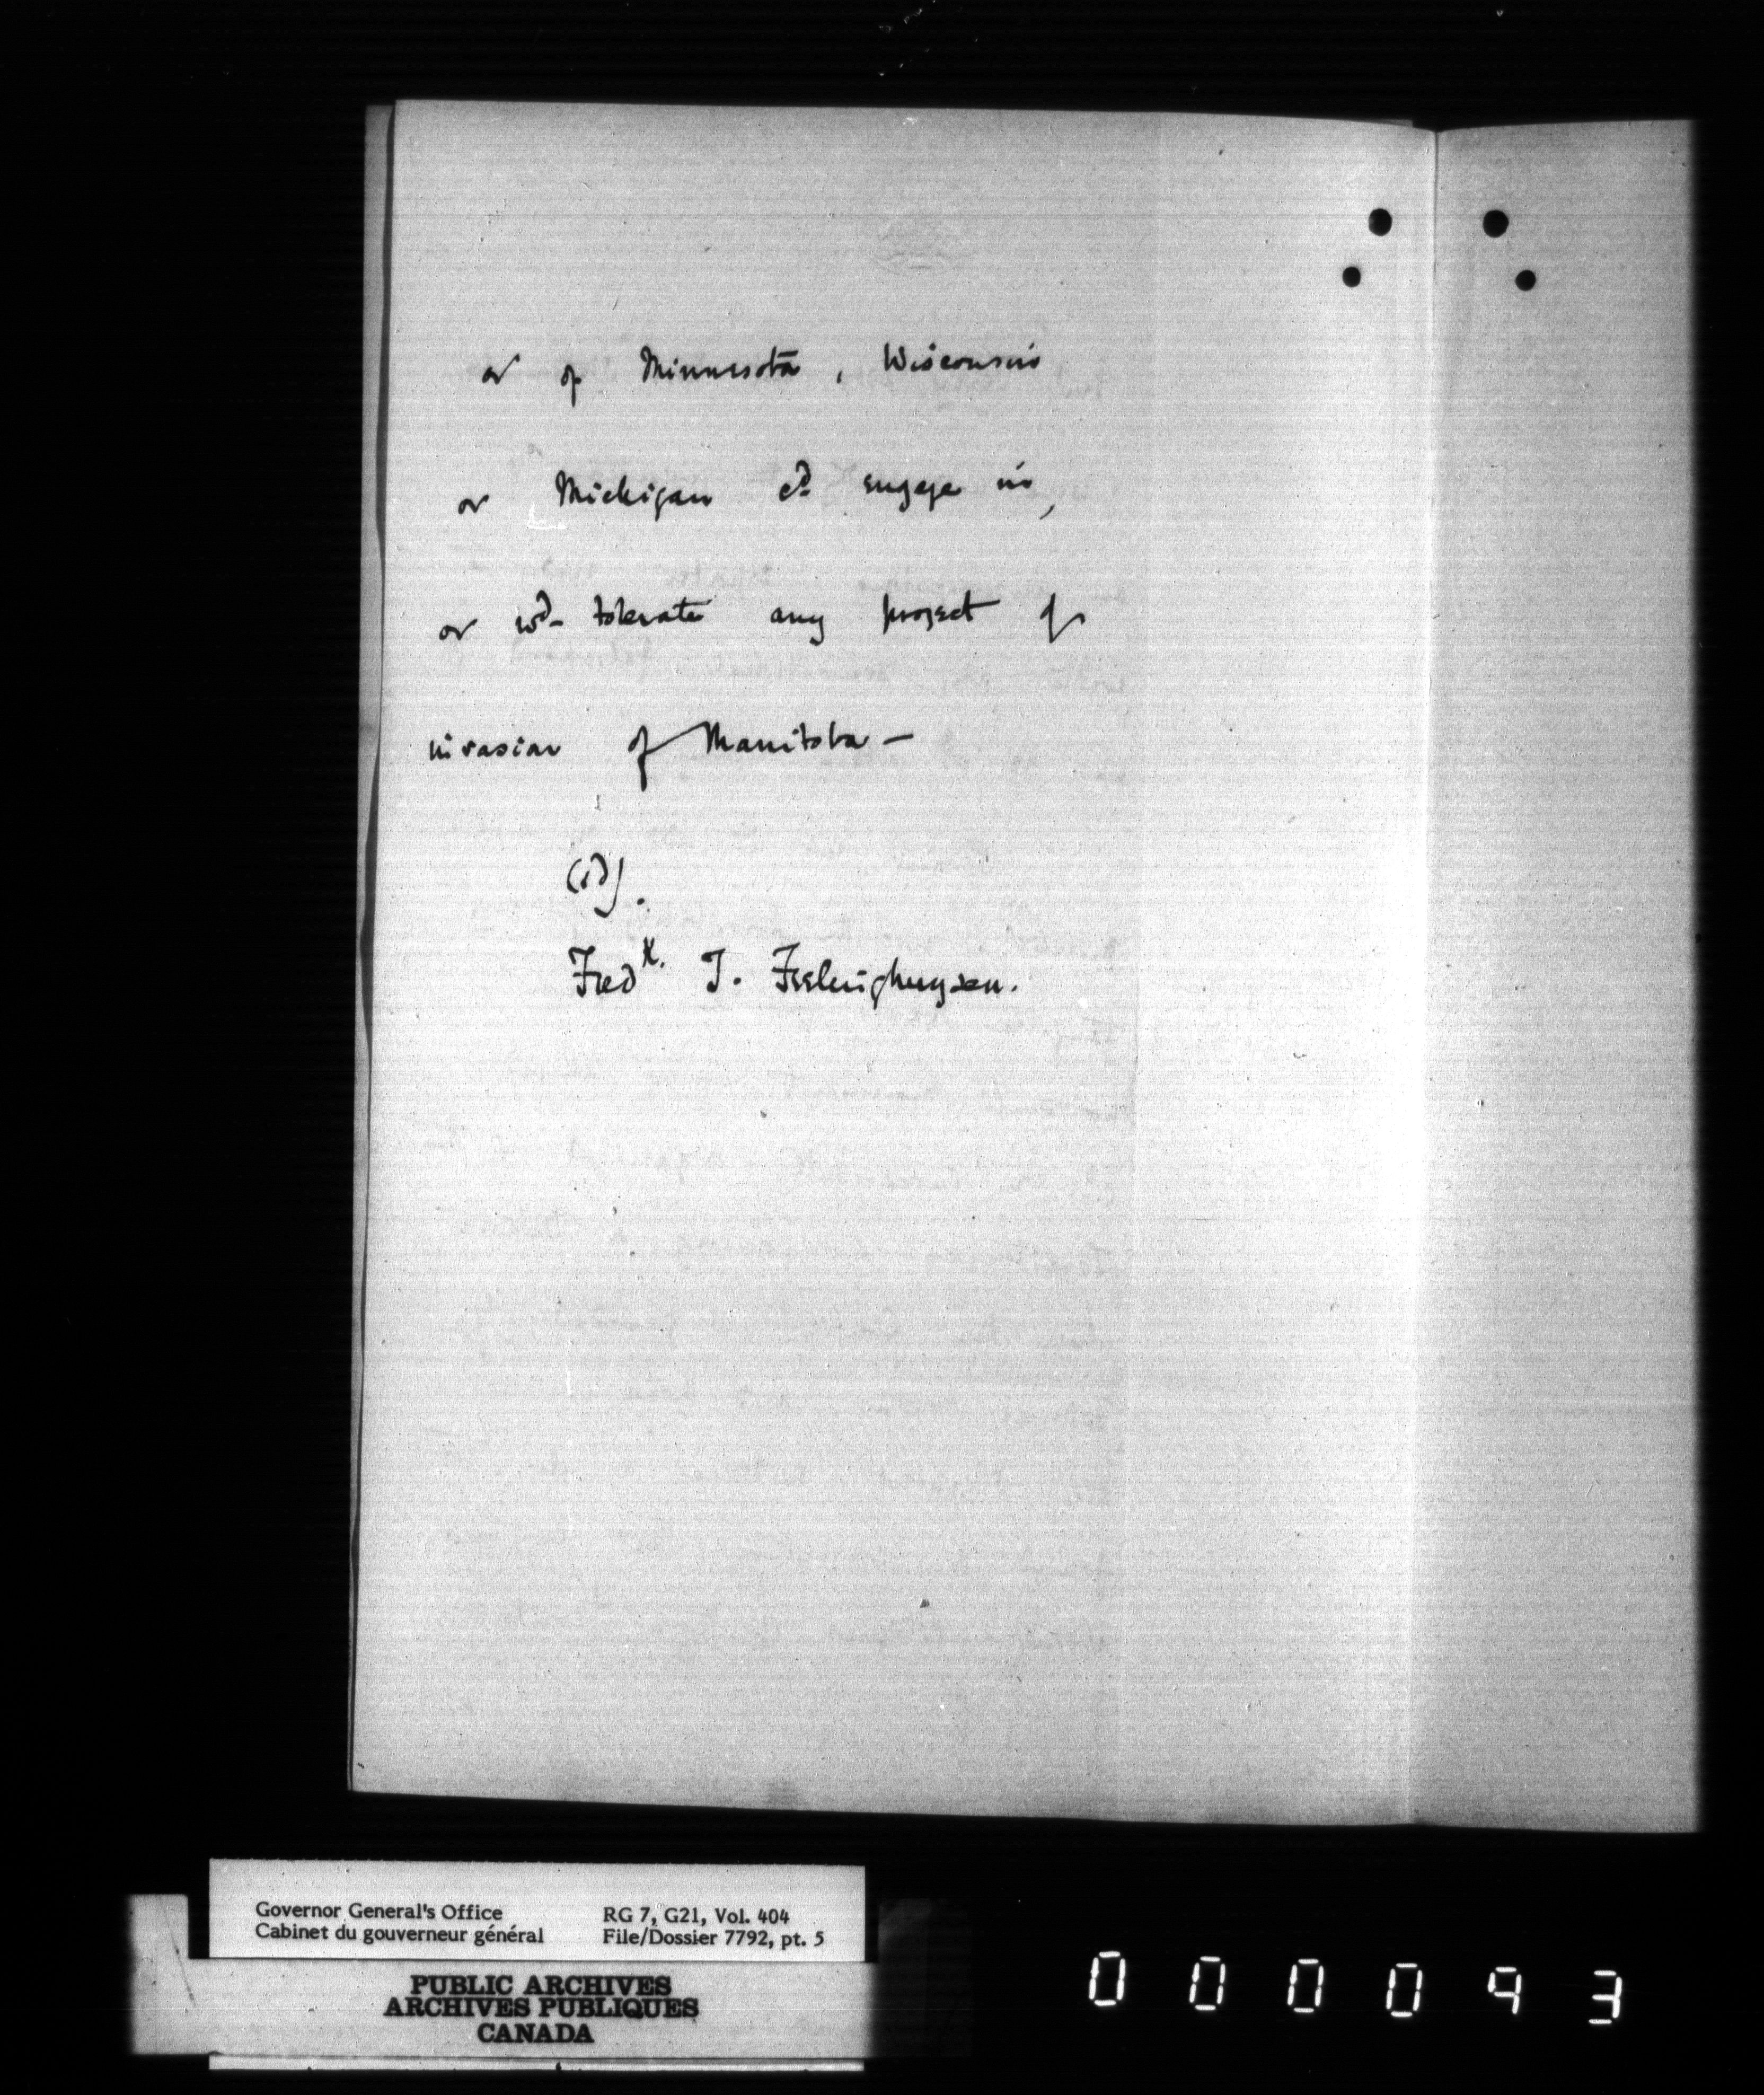 or of Minnesota, Wisconsin
or Michigan cd. engage in,
or wd- tolerate any project of
invasion of Manitoba —
(sd).
Fredk. T. Frelinghuysen.
Governor General's Office
Cabinet du gouverneur général
RG 7, G21, Vol. 404
File/Dossier 7792, pt. 5
PUBLIC ARCHIVES
ARCHIVES PUBLIQUES
CANADA
000093